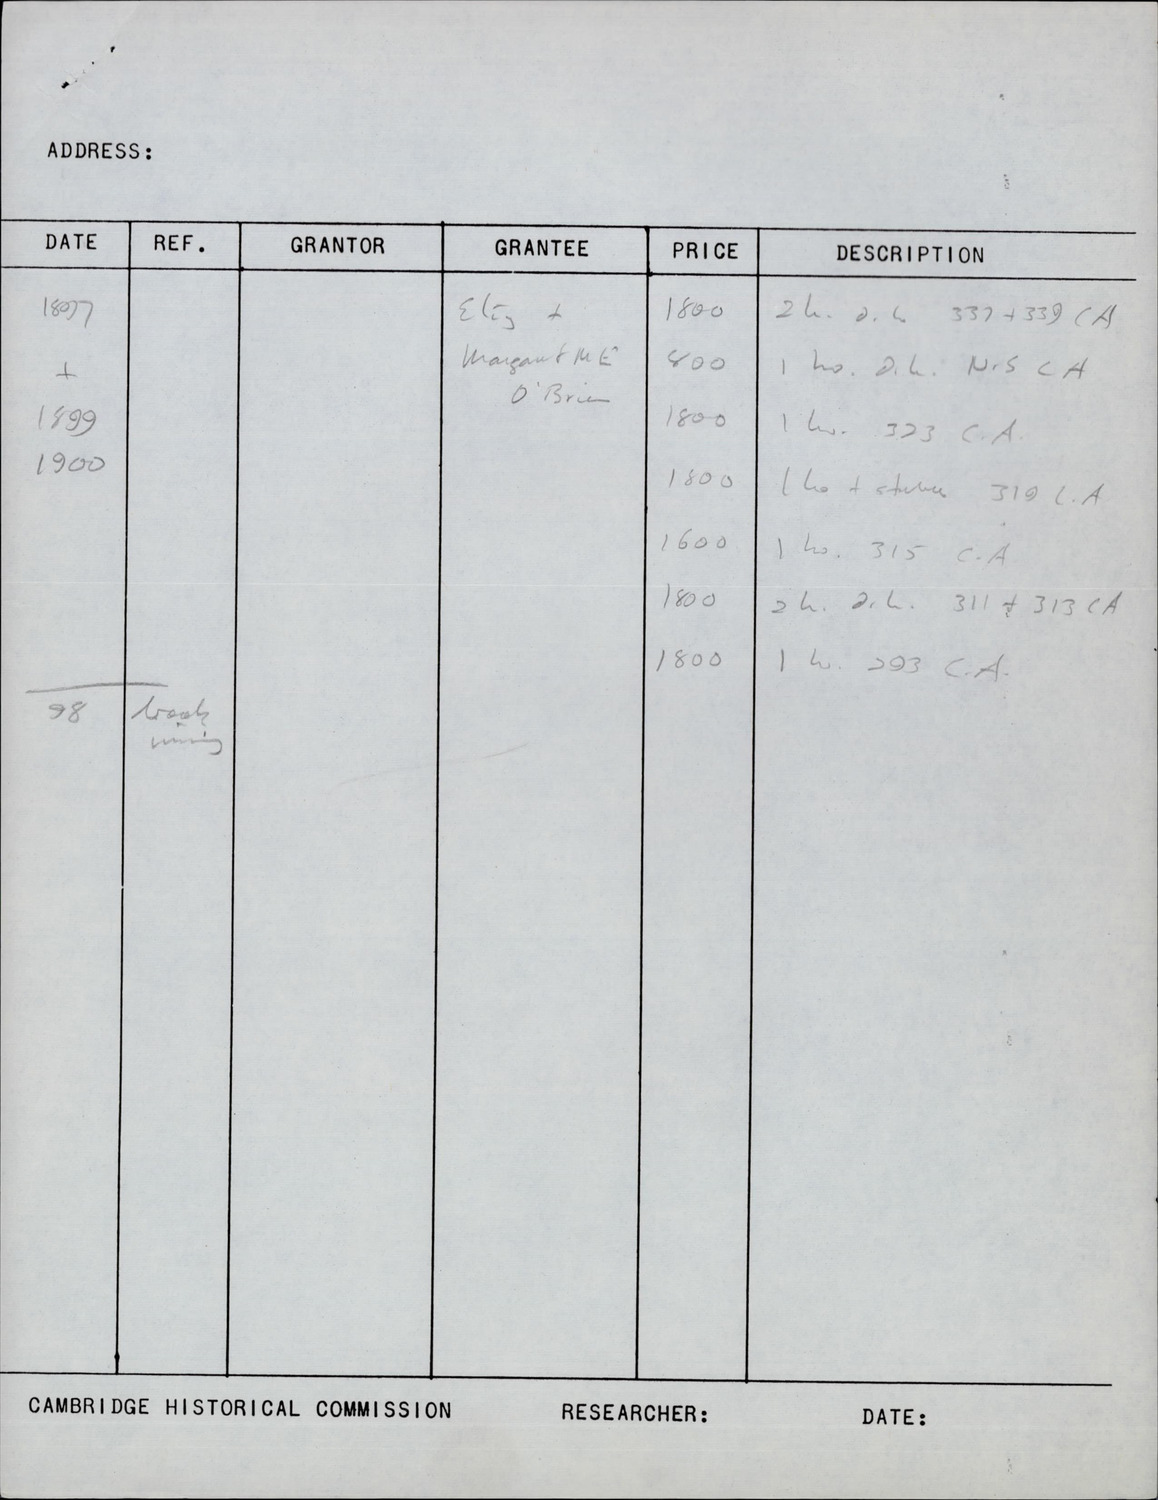 ADDRESS:
DATE REF. GRANTOR GRANTEE PRICE DESCRIPTION
1897 Eliz + 1800 2 h. d.h. 337 + 339 C A
+ Margaret M E 800 1 ho. d.h. N.S C A
O'Brien
1899 1800 1 ho. 323 C.A.
1900 1800 1 ho + 319 C.A
1600 1 ho. 315 C.A
1800 2 h. d.h. 311 + 313 C A
1800 1 ho. 293 C.A.
98 book
missing
CAMBRIDGE HISTORICAL COMMISSION RESEARCHER: DATE: